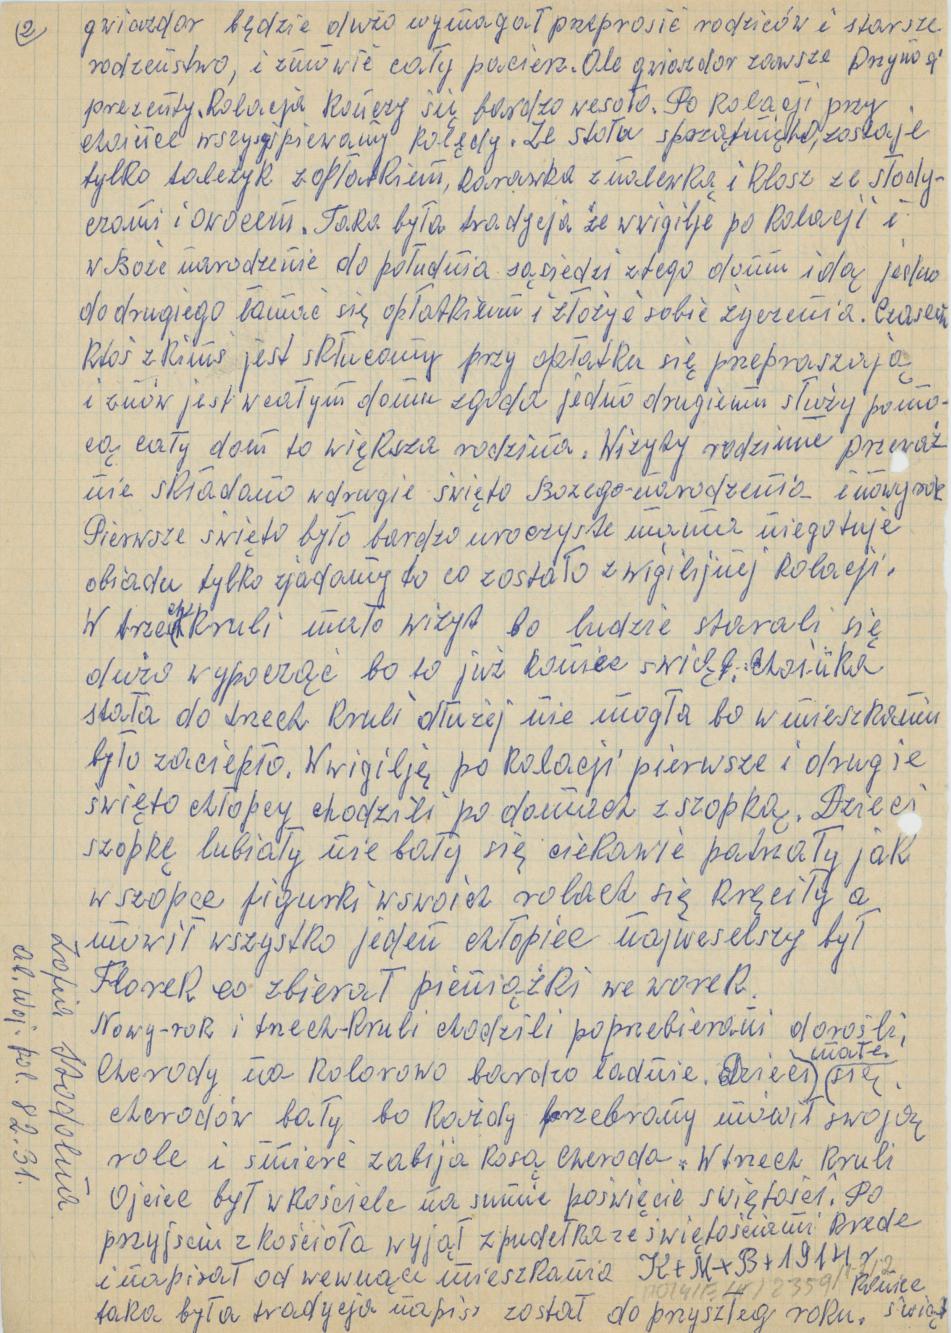 2
gwiazdor będzie dużo wymagał przeprosić rodziców i starsze
rodzeństwo, i zmówić cały pacierz. Ale gwiazdor zawsze przynosi
prezenty. Kolacja kończy się bardzo wesoło. Po kolacji przy
choince wszyscy śpiewamy kolędy. Ze stoła sprzątnięto, zostaje
tylko talezyk z opłatkiem, karawka z nalewką i klosz ze słody-
czami i owocem. Taka była tradycja że w wigilję po kolacji i
w Boże narodzenie do południa sąsiedzi z tego domu idą jedno
do drugiego łamać się opłatkiem i złożyć sobie życzenia. Czasem
ktoś z kimś jest skłucony przy opłatku się przepraszają
i znów jest w całym domu zgoda jedno drugiemu służy pomo-
cą cały dom to większa rodzina. Wizyty rodzinne przeważ
nie składano w drugie święto Bożego-narodzenia i nowy rok
Pierwsze święto było bardzo uroczyste mama niegotuje
obiadu tylko zjadamy to co zostało z wigilijnej kolacji.
W trzech Kruli mało wizyt bo ludzie starali się
dużo wypocząć bo to już koniec świąt. Choinka
stała do trzech Kruli dłużej nie mogła bo w mieszkaniu
było zaciepło. W wigilję po kolacji pierwsze i drugie
święto chłopcy chodzili po domach z szopką. Dzieci
szopkę lubiały nie bały się ciekawie patrzały jak
w szopce figurki w swoich rolach się kręciły a
mówił wszystko jeden chłopiec najweselszy był
Florek co zbierał pieniążki we worek.
Nowy-rok i trzech-Kruli chodzili poprzebierani dorośli,
Cherody na kolorowo bardzo ładnie. Dzieci małe się
cherodów bały bo każdy przebrany mówił swoją
role i śmierć zabija kosą Cheroda. W trzech Kruli
Ojciec był w kościele na sumie poświęcić świętości. Po
przyjściu z kościoła wyjął z pudełka ze świętościami krede
i napisał od wewnącz mieszkania K+M+B+1914 r
taka była tradycja napis został do przyszłeg roku. Koniec świąt
Zofia Stodolna
al. Woj. pol. 82.31.